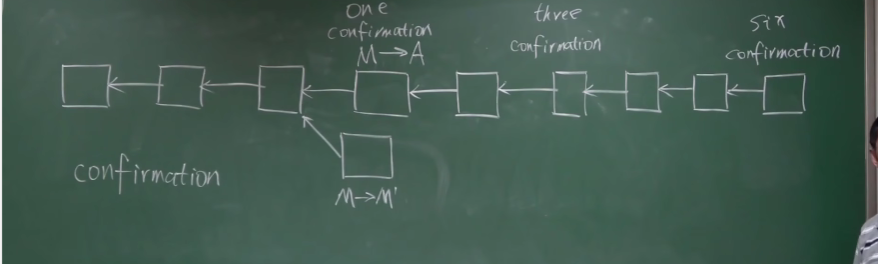 one
confirmation
M→A
three
confirmation
six
confirmation
confirmation
M→M'